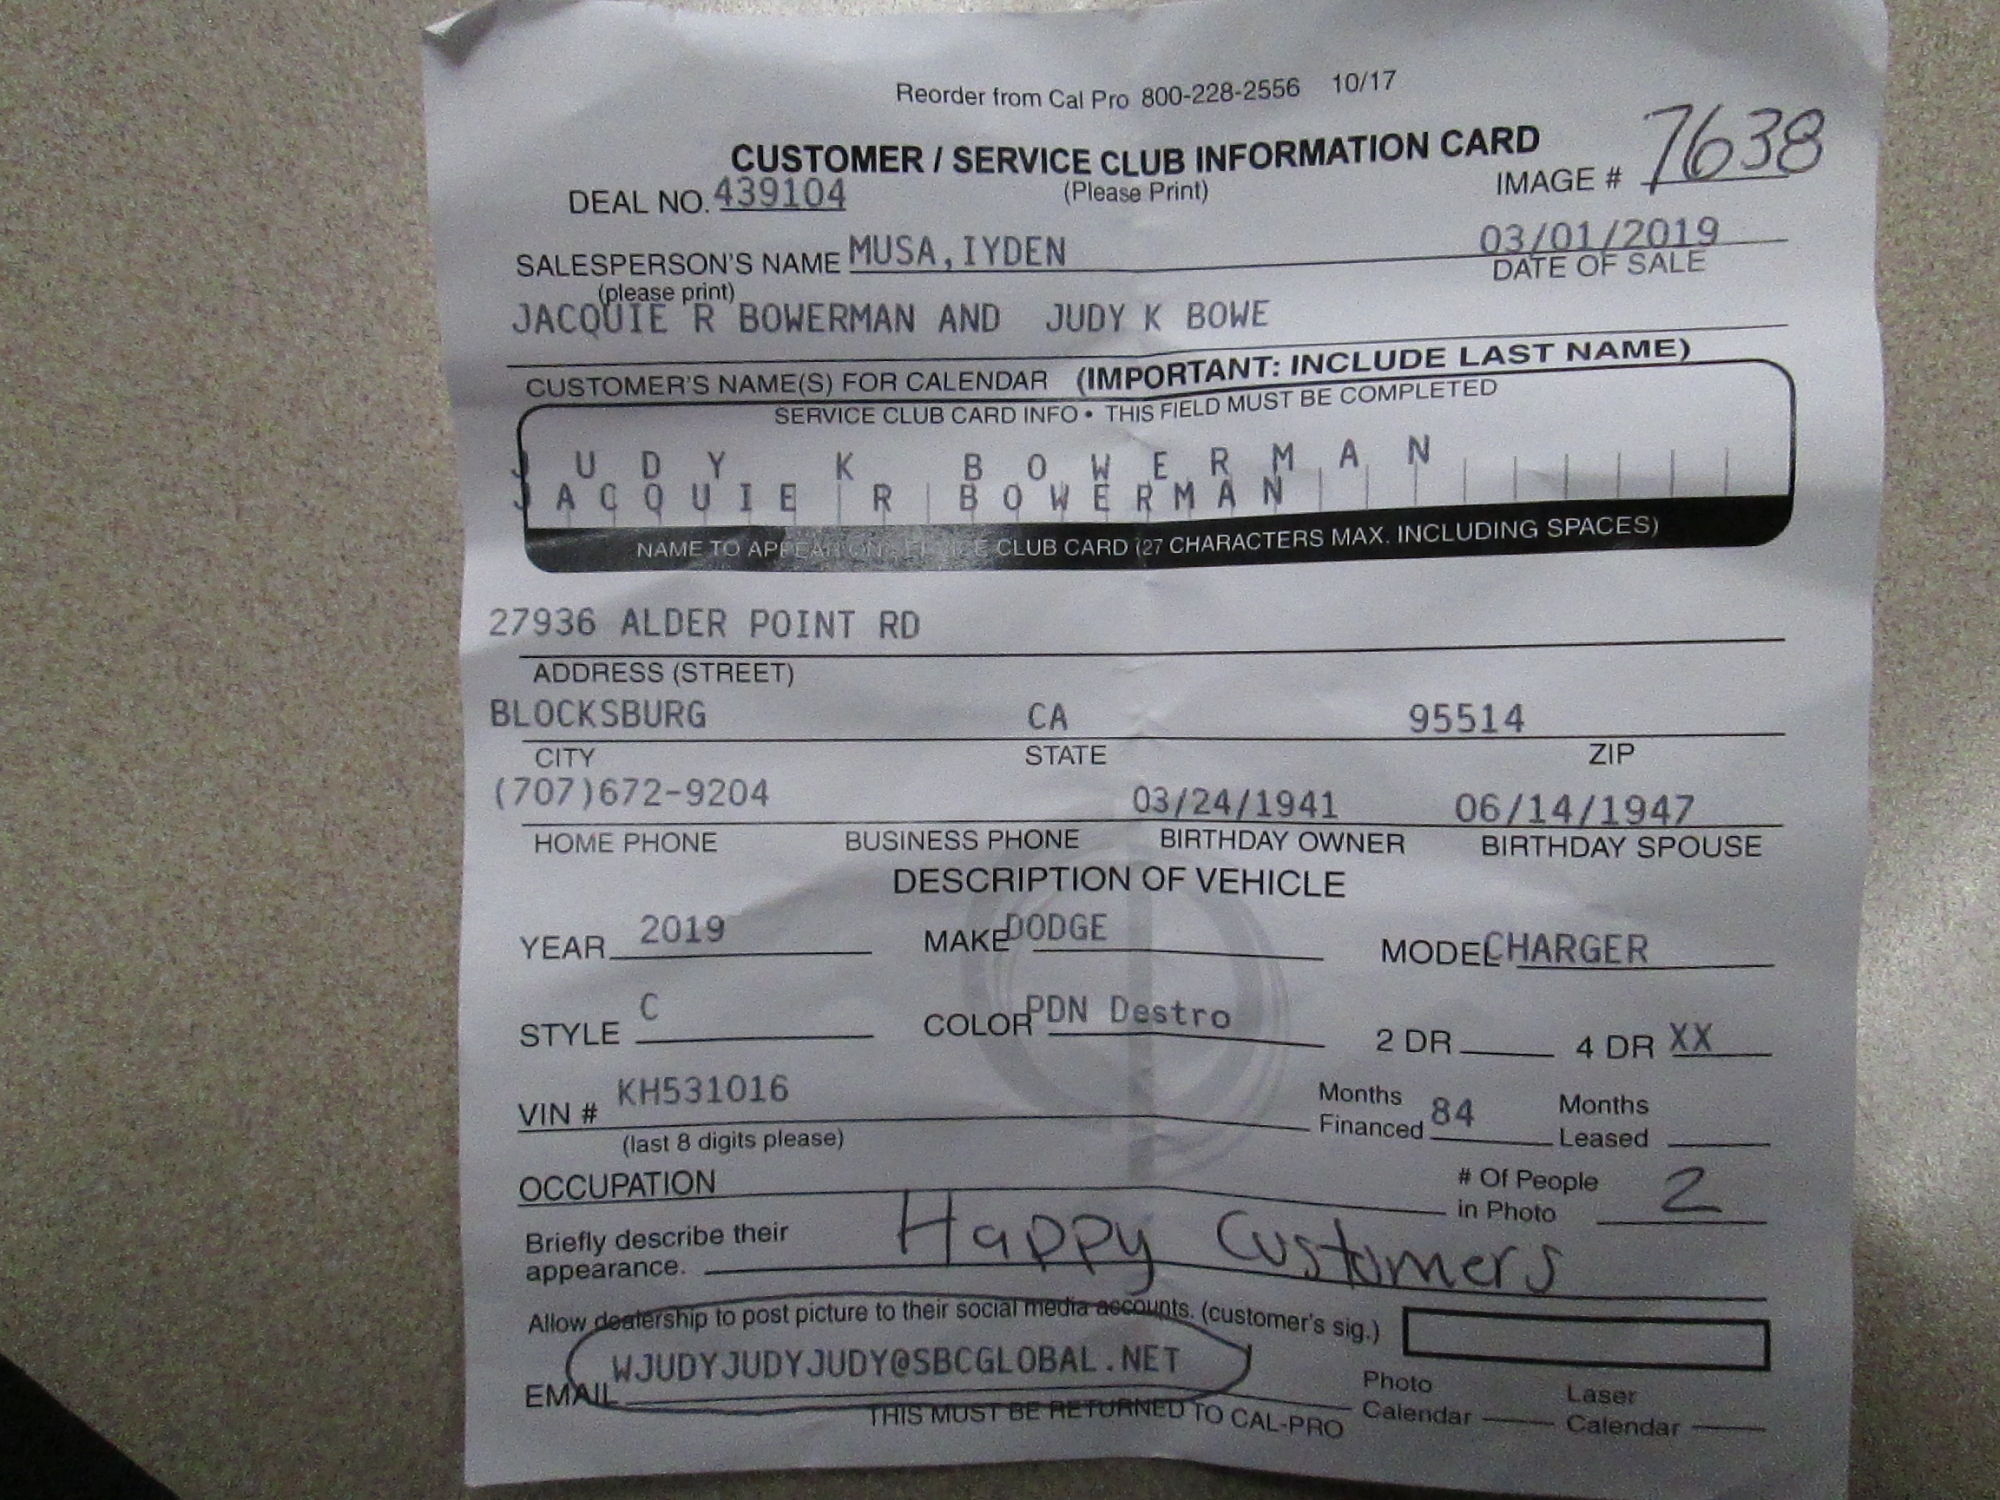 Reorder from Cal Pro 800-228-2556 10/17
CUSTOMER / SERVICE CLUB INFORMATION CARD
(Please Print)
DEAL NO. 439104
IMAGE # 7638
SALESPERSON'S NAME MUSA, IYDEN
(please print)
03/01/2019
DATE OF SALE
JACQUIE R BOWERMAN AND JUDY K BOWE
CUSTOMER'S NAME(S) FOR CALENDAR (IMPORTANT: INCLUDE LAST NAME)
SERVICE CLUB CARD INFO • THIS FIELD MUST BE COMPLETED
JUDY K BOWERMAN
JACQUIE R BOWERMAN
NAME TO APPEAR ON SERVICE CLUB CARD (27 CHARACTERS MAX. INCLUDING SPACES)
27936 ALDER POINT RD
ADDRESS (STREET)
BLOCKSBURG CA 95514
CITY STATE ZIP
(707)672-9204 03/24/1941 06/14/1947
HOME PHONE BUSINESS PHONE BIRTHDAY OWNER BIRTHDAY SPOUSE
DESCRIPTION OF VEHICLE
YEAR 2019 MAKE DODGE MODEL CHARGER
STYLE C COLOR PDN Destro 2 DR 4 DR XX
VIN # KH531016 Months Financed 84 Months Leased
(last 8 digits please)
OCCUPATION # Of People in Photo 2
Briefly describe their appearance. Happy Customers
Allow dealership to post picture to their social media accounts. (customer's sig.)
EMAIL WJUDYJUDYJUDY@SBCGLOBAL.NET
Photo Calendar Laser Calendar
THIS MUST BE RETURNED TO CAL-PRO